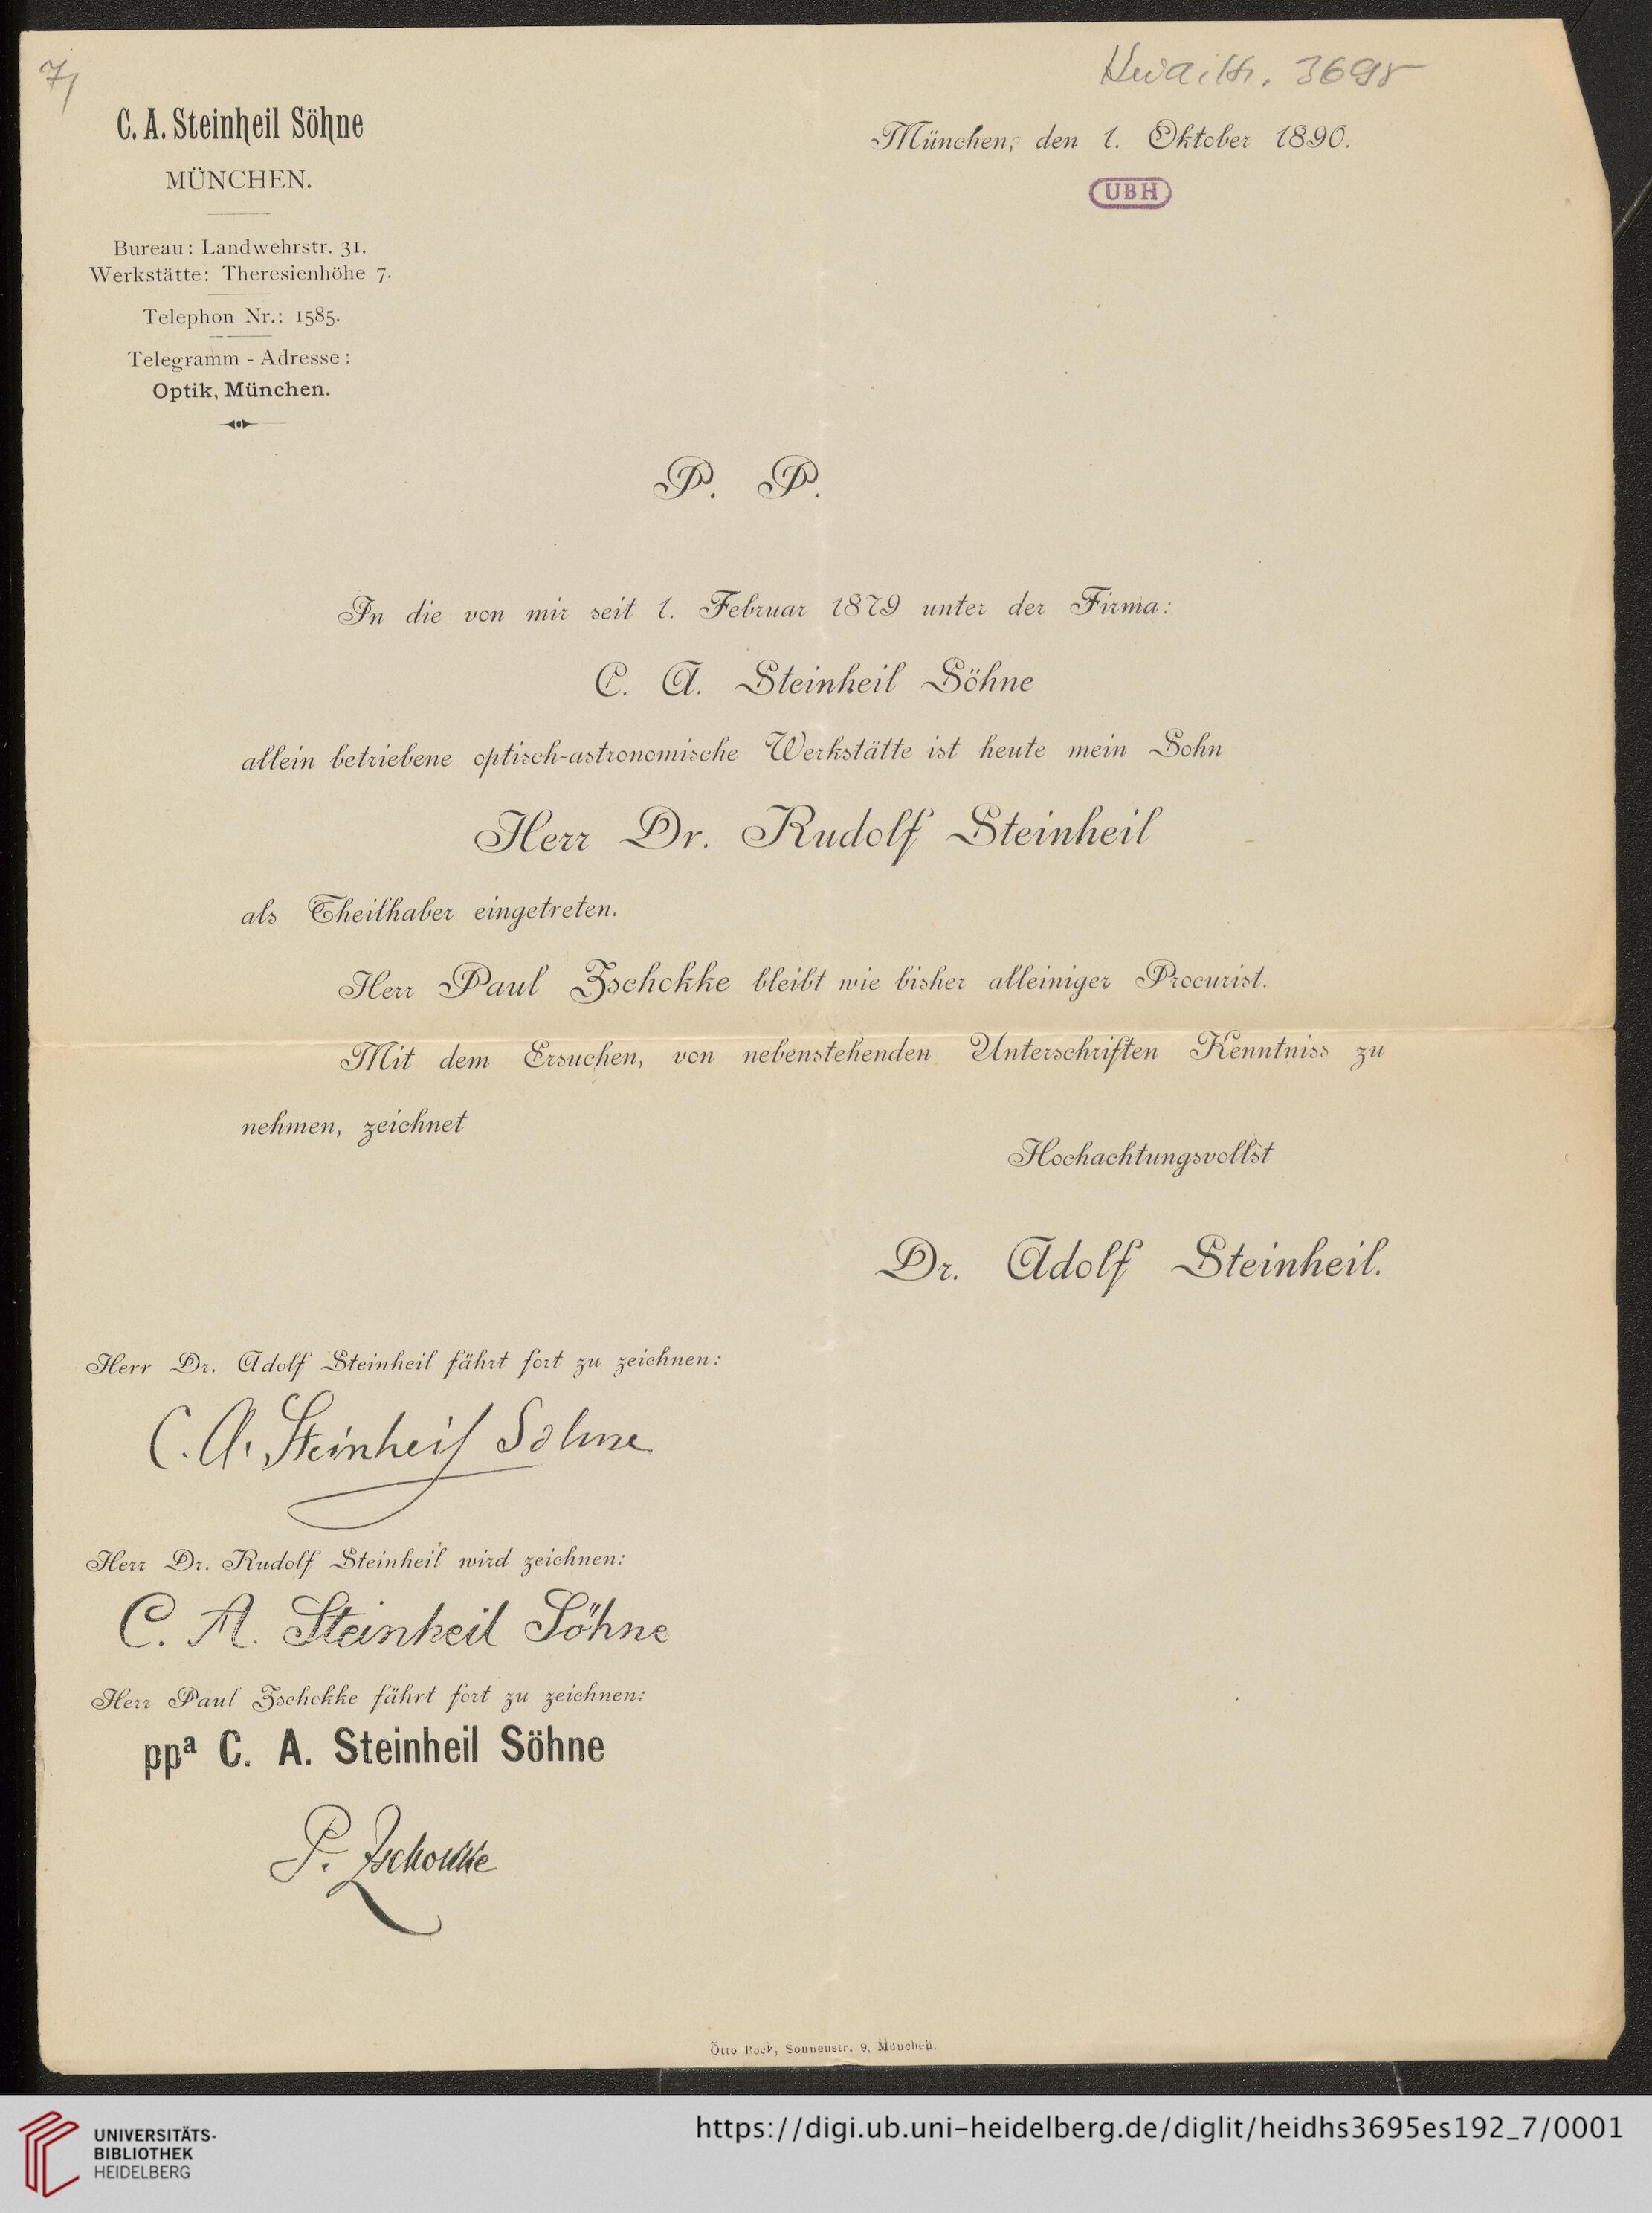 7)
Heid. Hs. 3695
C. A. Steinheil Söhne
MÜNCHEN.
München, den 1. Oktober 1890.
UBH
Bureau: Landwehrstr. 31.
Werkstätte: Theresienhöhe 7.
Telephon Nr.: 1585.
Telegramm - Adresse:
Optik, München.
P. P.
In die von mir seit 1. Februar 1879 unter der Firma:
C. A. Steinheil Söhne
allein betriebene optisch-astronomische Werkstätte ist heute mein Sohn
Herr Dr. Rudolf Steinheil
als Theilhaber eingetreten.
Herr Paul Zschokke bleibt wie bisher alleiniger Procurist.
Mit dem Ersuchen, von nebenstehenden Unterschriften Kenntniss zu
nehmen, zeichnet
Hochachtungsvollst
Dr. Adolf Steinheil.
Herr Dr. Adolf Steinheil fährt fort zu zeichnen:
C. A. Steinheil Söhne
Herr Dr. Rudolf Steinheil wird zeichnen:
C. A. Steinheil Söhne
Herr Paul Zschokke fährt fort zu zeichnen:
ppa C. A. Steinheil Söhne
P. Zschokke
Otto Sonnenstr. 9, München.
UNIVERSITÄTS-
BIBLIOTHEK
HEIDELBERG
https://digi.ub.uni-heidelberg.de/diglit/heidhs3695es192_7/0001